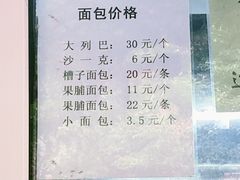 面包价格
大列巴：30 元/个
沙一克：6 元/个
槽子面包：20 元/条
果脯面包：11 元/个
果脯面包：22 元/条
小面包：3.5 元/个